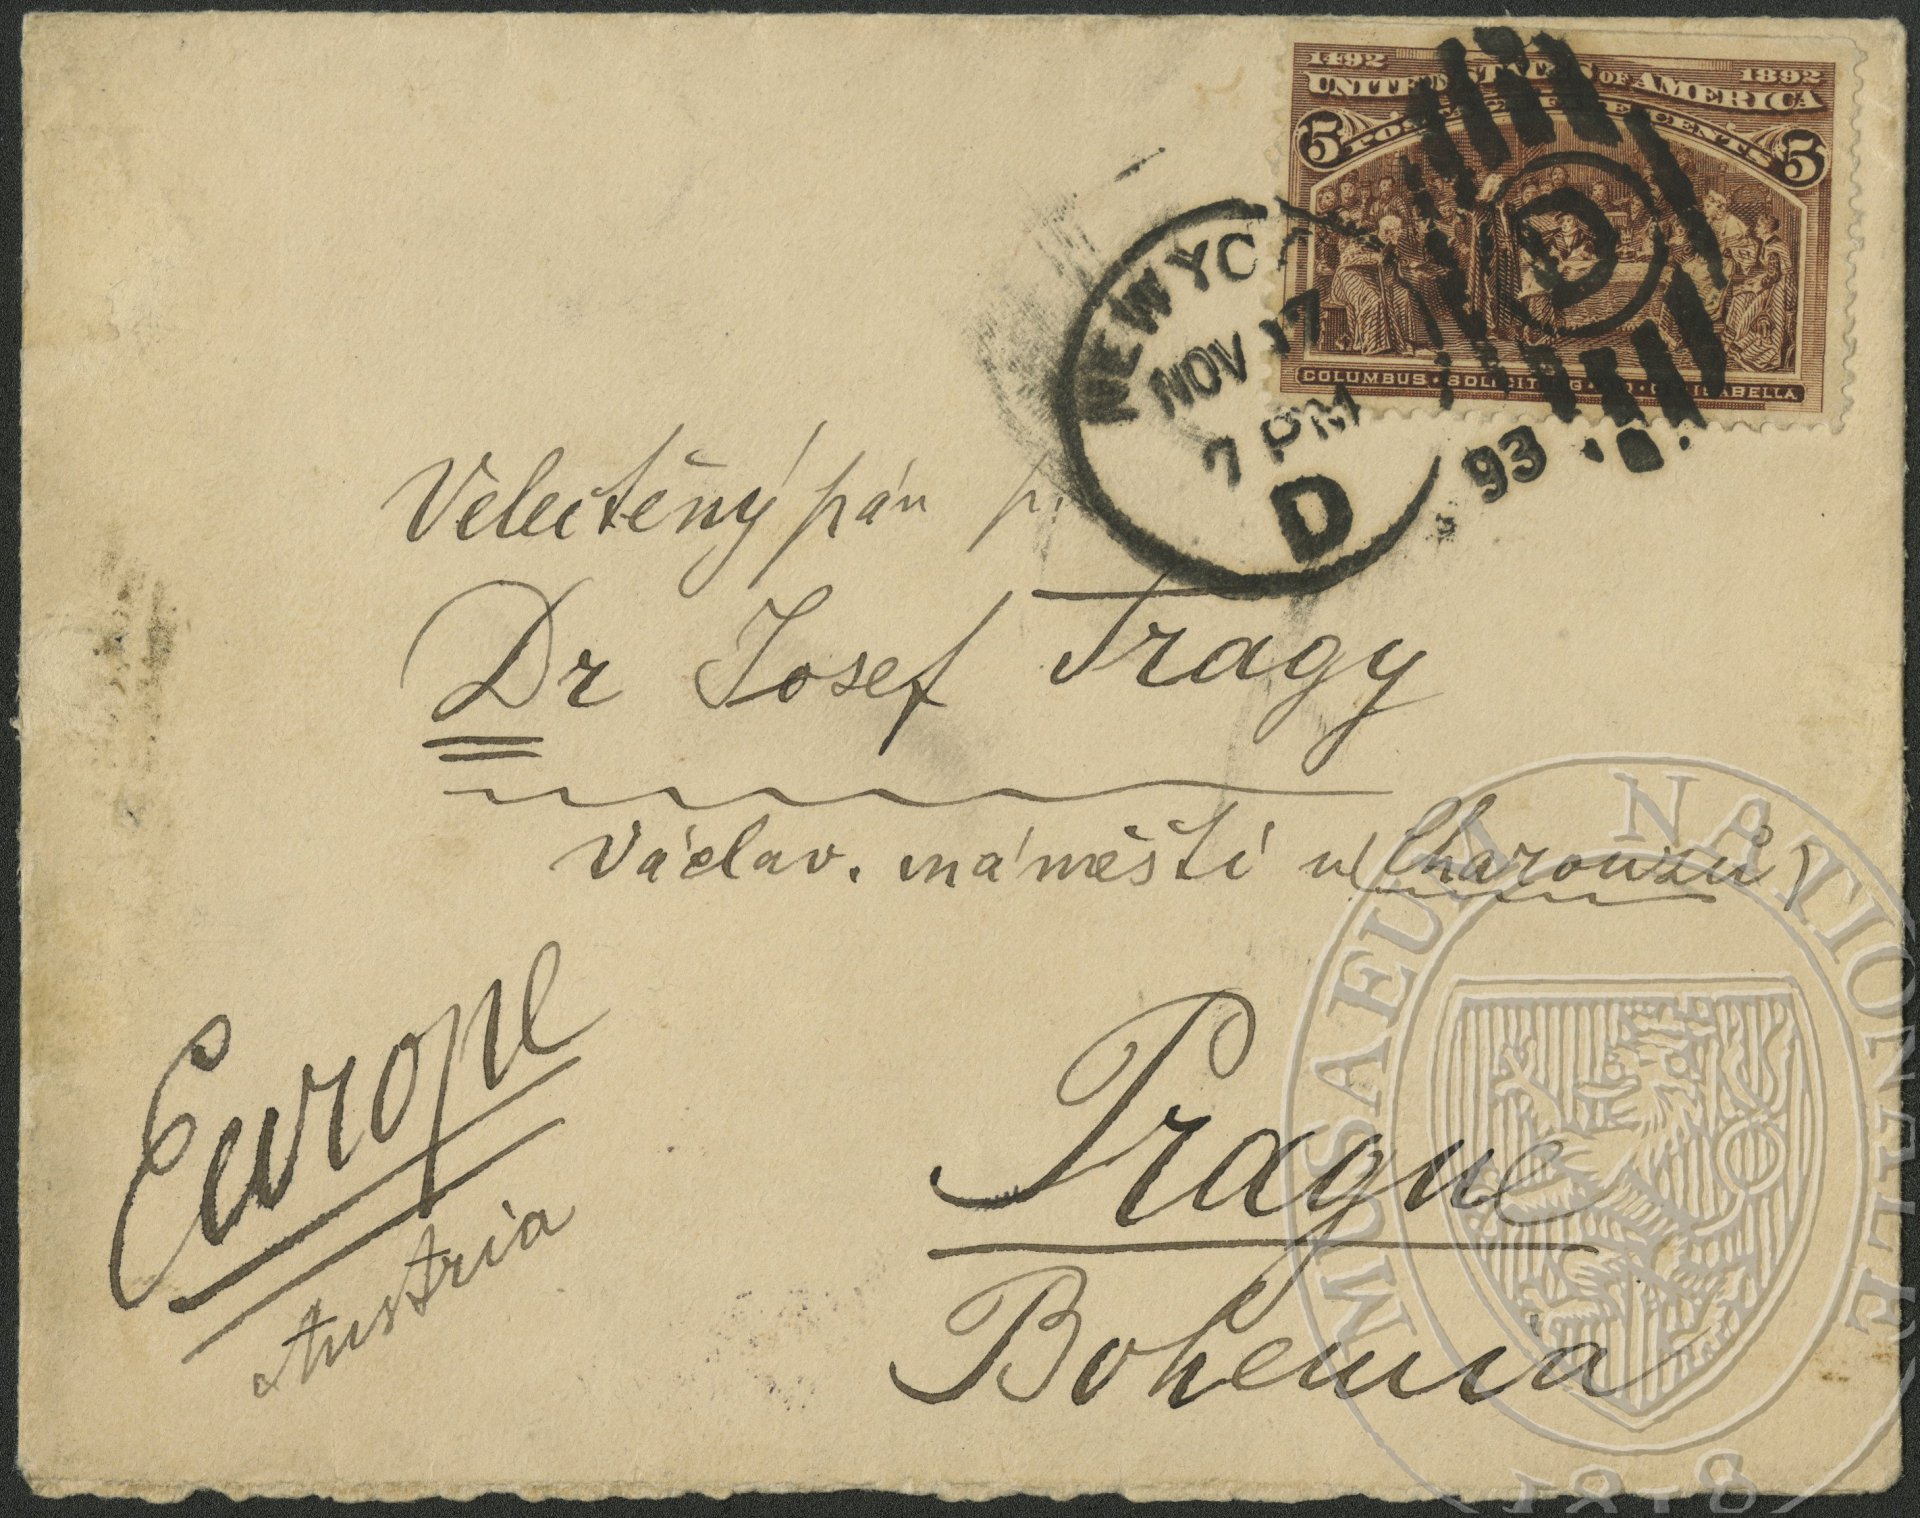 1492 1892
UNITED STATES OF AMERICA
5 5
COLUMBUS SOLICITING ISABELLA
D
NEW YO
NOV 17
7 PM
93
D
Velectěný pán p.
Dr Josef Tragy
Václav. náměstí u (Charouzů)
Europe
Austria
Prague
Bohemia
MUSAEUM NATIONALE
1818